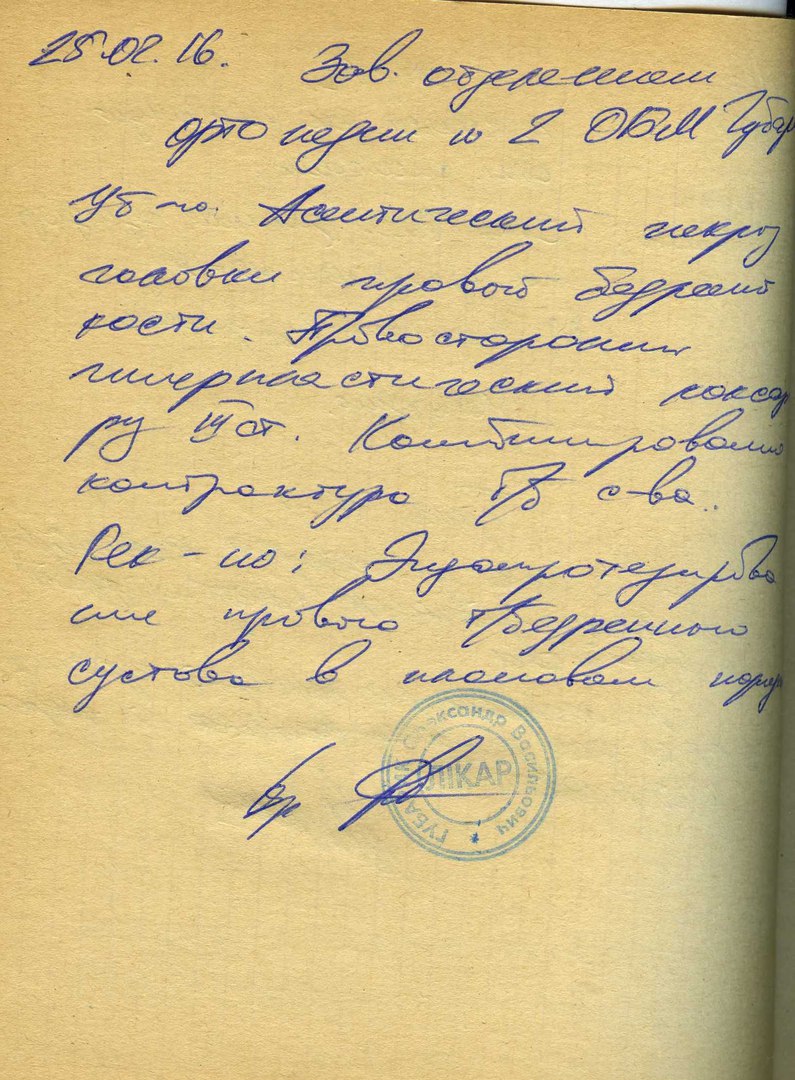 25.02.16. Зав. отделением
ортопедии 2 ОБМ Губар
Асептический некроз
головки правой бедренной
кости. Правосторонний
гиперпластический коксар
III ст. Комбинированная
контрактура Т/Б с-ва.
Рек-но: Эндопротезирова
ние правого т/бедренного
сустава в плановом поряд
вр
ГУБА Олександр Васильович
ЛІКАР